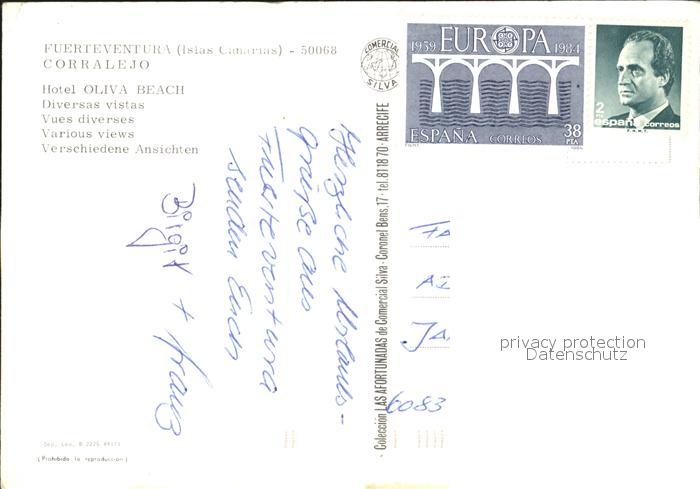 FUERTEVENTURA (Islas Canarias) - 50068
CORRALEJO
Hotel OLIVA BEACH
Diversas vistas
Vues diverses
Various views
Verschiedene Ansichten
Herzliche Urlaubs-
grüße aus
Fuerteventura
senden Euch
Birgit + Franz
Dep. Leg. B
(Prohibida la reproducción)
COMERCIAL
SILVA
Colección LAS AFORTUNADAS de Comercial Silva - Coronel Bens, 17 - tel. 81 18 70 - ARRECIFE
1959 EUROPA 1984
ESPAÑA CORREOS 38
PTA
2
españa correos
F.N.M.T.
FA
AZ
JA
6083
privacy protection
Datenschutz